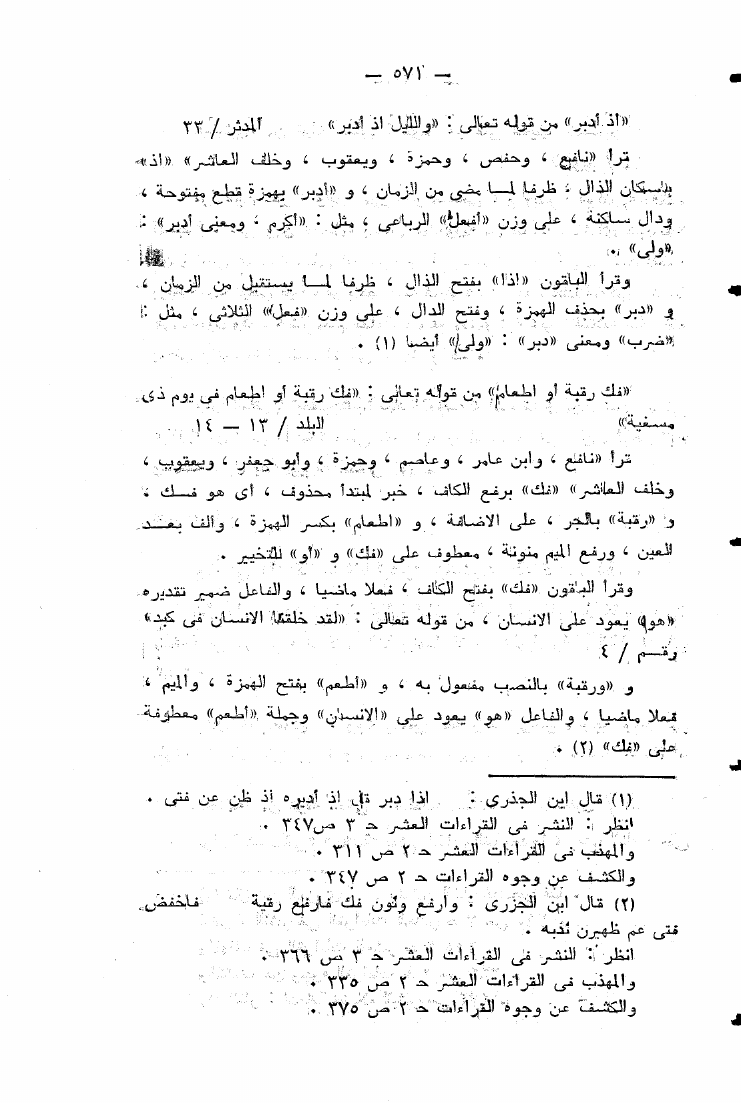 — ٥٧١ —
«اذ أدبر» من قوله تعالى : «والليل اذ أدبر» المدثر / ٣٣
قرأ «نافع ، وحفص ، وحمزة ، ويعقوب ، وخلف العاشر» «اذ»
باسكان الذال ، ظرفا لمـا مضى من الزمان ، و «أدبر» بهمزة قطع مفتوحة ،
ودال ساكنة ، على وزن «أفعل» الرباعى ، مثل : «أكرم ، ومعنى أدبر» :
«ولى» .
وقرأ الباقون «اذا» بفتح الذال ، ظرفا لمـا يستقبل من الزمان ،
و «دبر» بحذف الهمزة ، وفتح الدال ، على وزن «فعل» الثلاثى ، مثل :
«ضرب» ومعنى «دبر» : «ولى» أيضا (١) .
«فك رقبة أو اطعام» من قوله تعالى : «فك رقبة أو اطعام فى يوم ذى
مسغبة» البلد / ١٣ — ١٤
قرأ «نافع ، وابن عامر ، وعاصم ، وحمزة ، وأبو جعفر ، ويعقوب ،
وخلف العاشر» «فك» برفع الكاف ، خبر لمبتدأ محذوف ، أى هو فـك ،
و «رقبة» بالجر ، على الاضافة ، و «اطعام» بكسر الهمزة ، وألف بعـد
العين ، ورفع الميم منونة ، معطوف على «فك» و «أو» للتخيير .
وقرأ الباقون «فك» بفتح الكاف ، فعلا ماضيا ، والفاعل ضمير تقديره
«هو» يعود على الانسان ، من قوله تعالى : «لقد خلقنا الانسان فى كبد»
رقـم / ٤
و «ورقبة» بالنصب مفعول به ، و «أطعم» بفتح الهمزة ، والميم ،
فعلا ماضيا ، والفاعل «هو» يعود على «الانسان» وجملة «أطعم» معطوفة
على «فك» (٢) .
(١) قال ابن الجذرى : اذا دبر قل اذ أدبره اذ ظن عن فتى .
انظر : النشر فى القراءات العشر حـ ٣ ص ٣٤٧ .
والمهذب فى القراءات العشر حـ ٢ ص ٣١١ .
والكشف عن وجوه القراءات حـ ٢ ص ٣٤٧ .
(٢) قال ابن الجزرى : وارفع ونون فك فارفع رقبة فاخفض
فتى عم ظهيرن ندبه .
انظر : النشر فى القراءات العشر حـ ٣ ص ٣٦٦ .
والمهذب فى القراءات العشر حـ ٢ ص ٣٣٥ .
والكشف عن وجوه القراءات حـ ٢ ص ٣٧٥ .